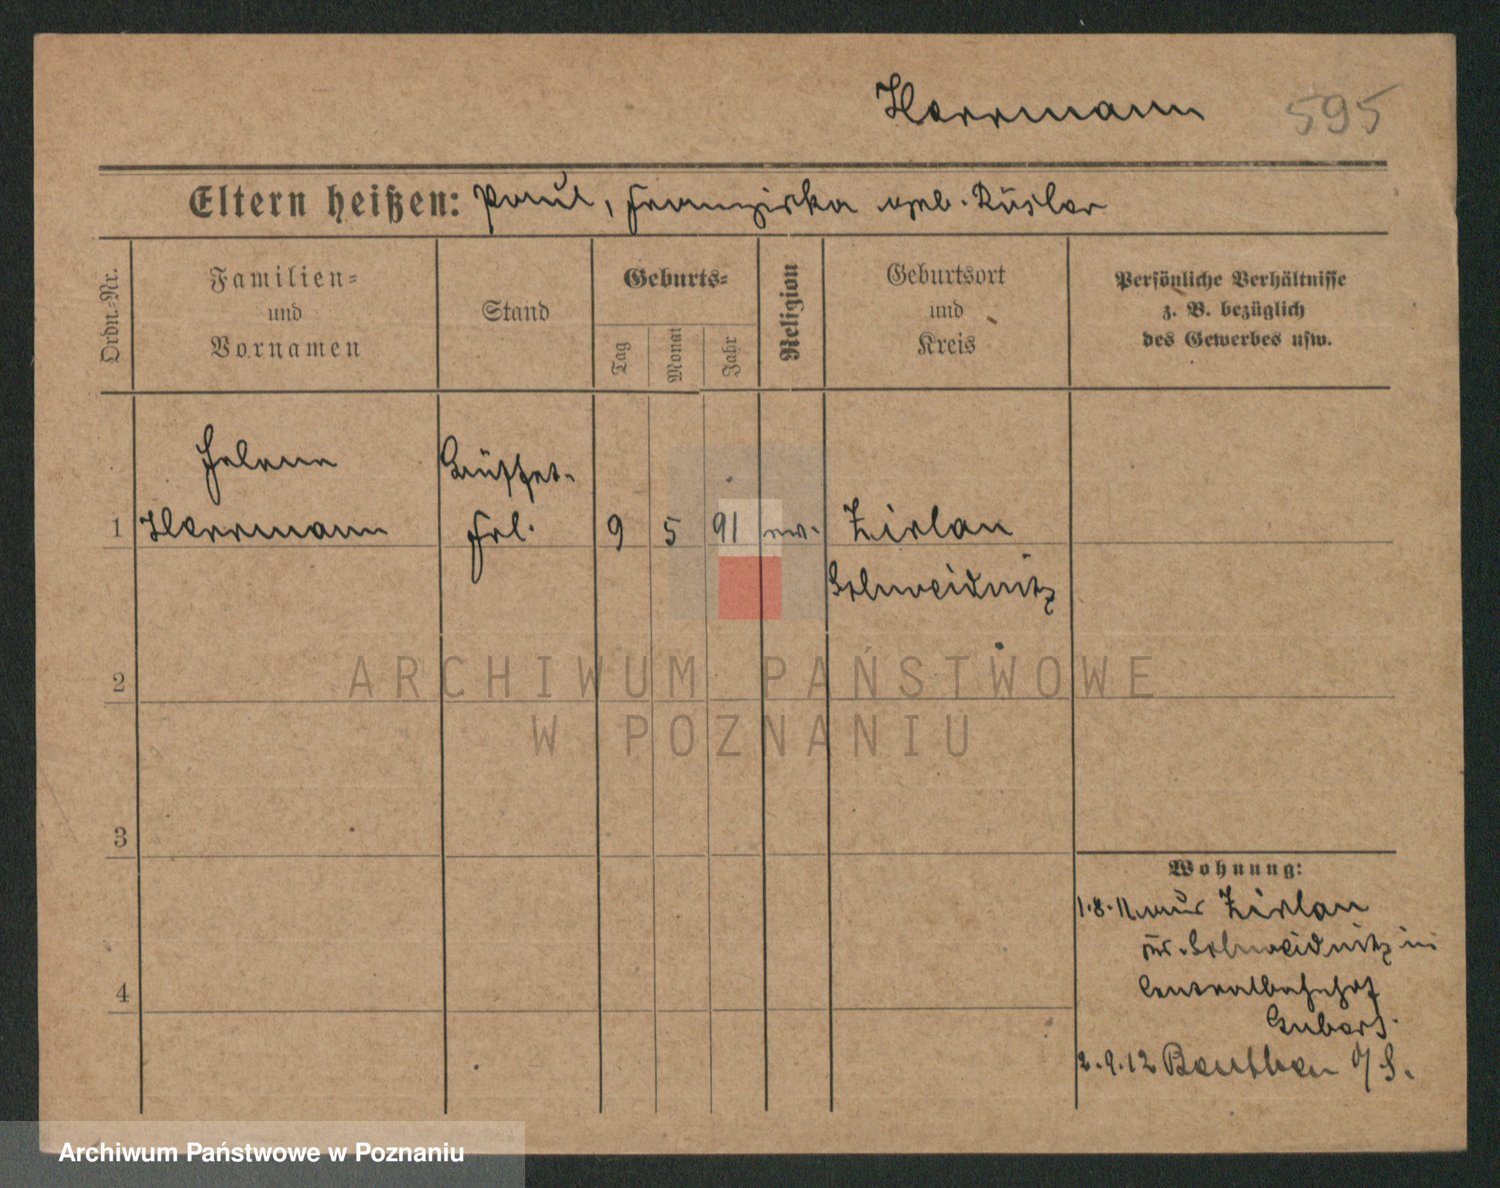 Herrmann 595
Eltern heißen: Paul, Franziska geb. Rösler
Ordn.-Nr.
Familien- und Vornamen
Stand
Geburts-
Tag
Monat
Jahr
Religion
Geburtsort und Kreis
Persönliche Verhältnisse z. B. bezüglich des Gewerbes usw.
Helene Büffet-
1 Herrmann Frl. 9 5 91 ev. Zirlau
Schweidnitz
2
ARCHIWUM PAŃSTWOWE
W POZNANIU
3
Wohnung:
1.8.11 aus Zirlau
Schweidnitz in
Centralbahnhof
4
2.9.12 Beuthen O/S.
Archiwum Państwowe w Poznaniu